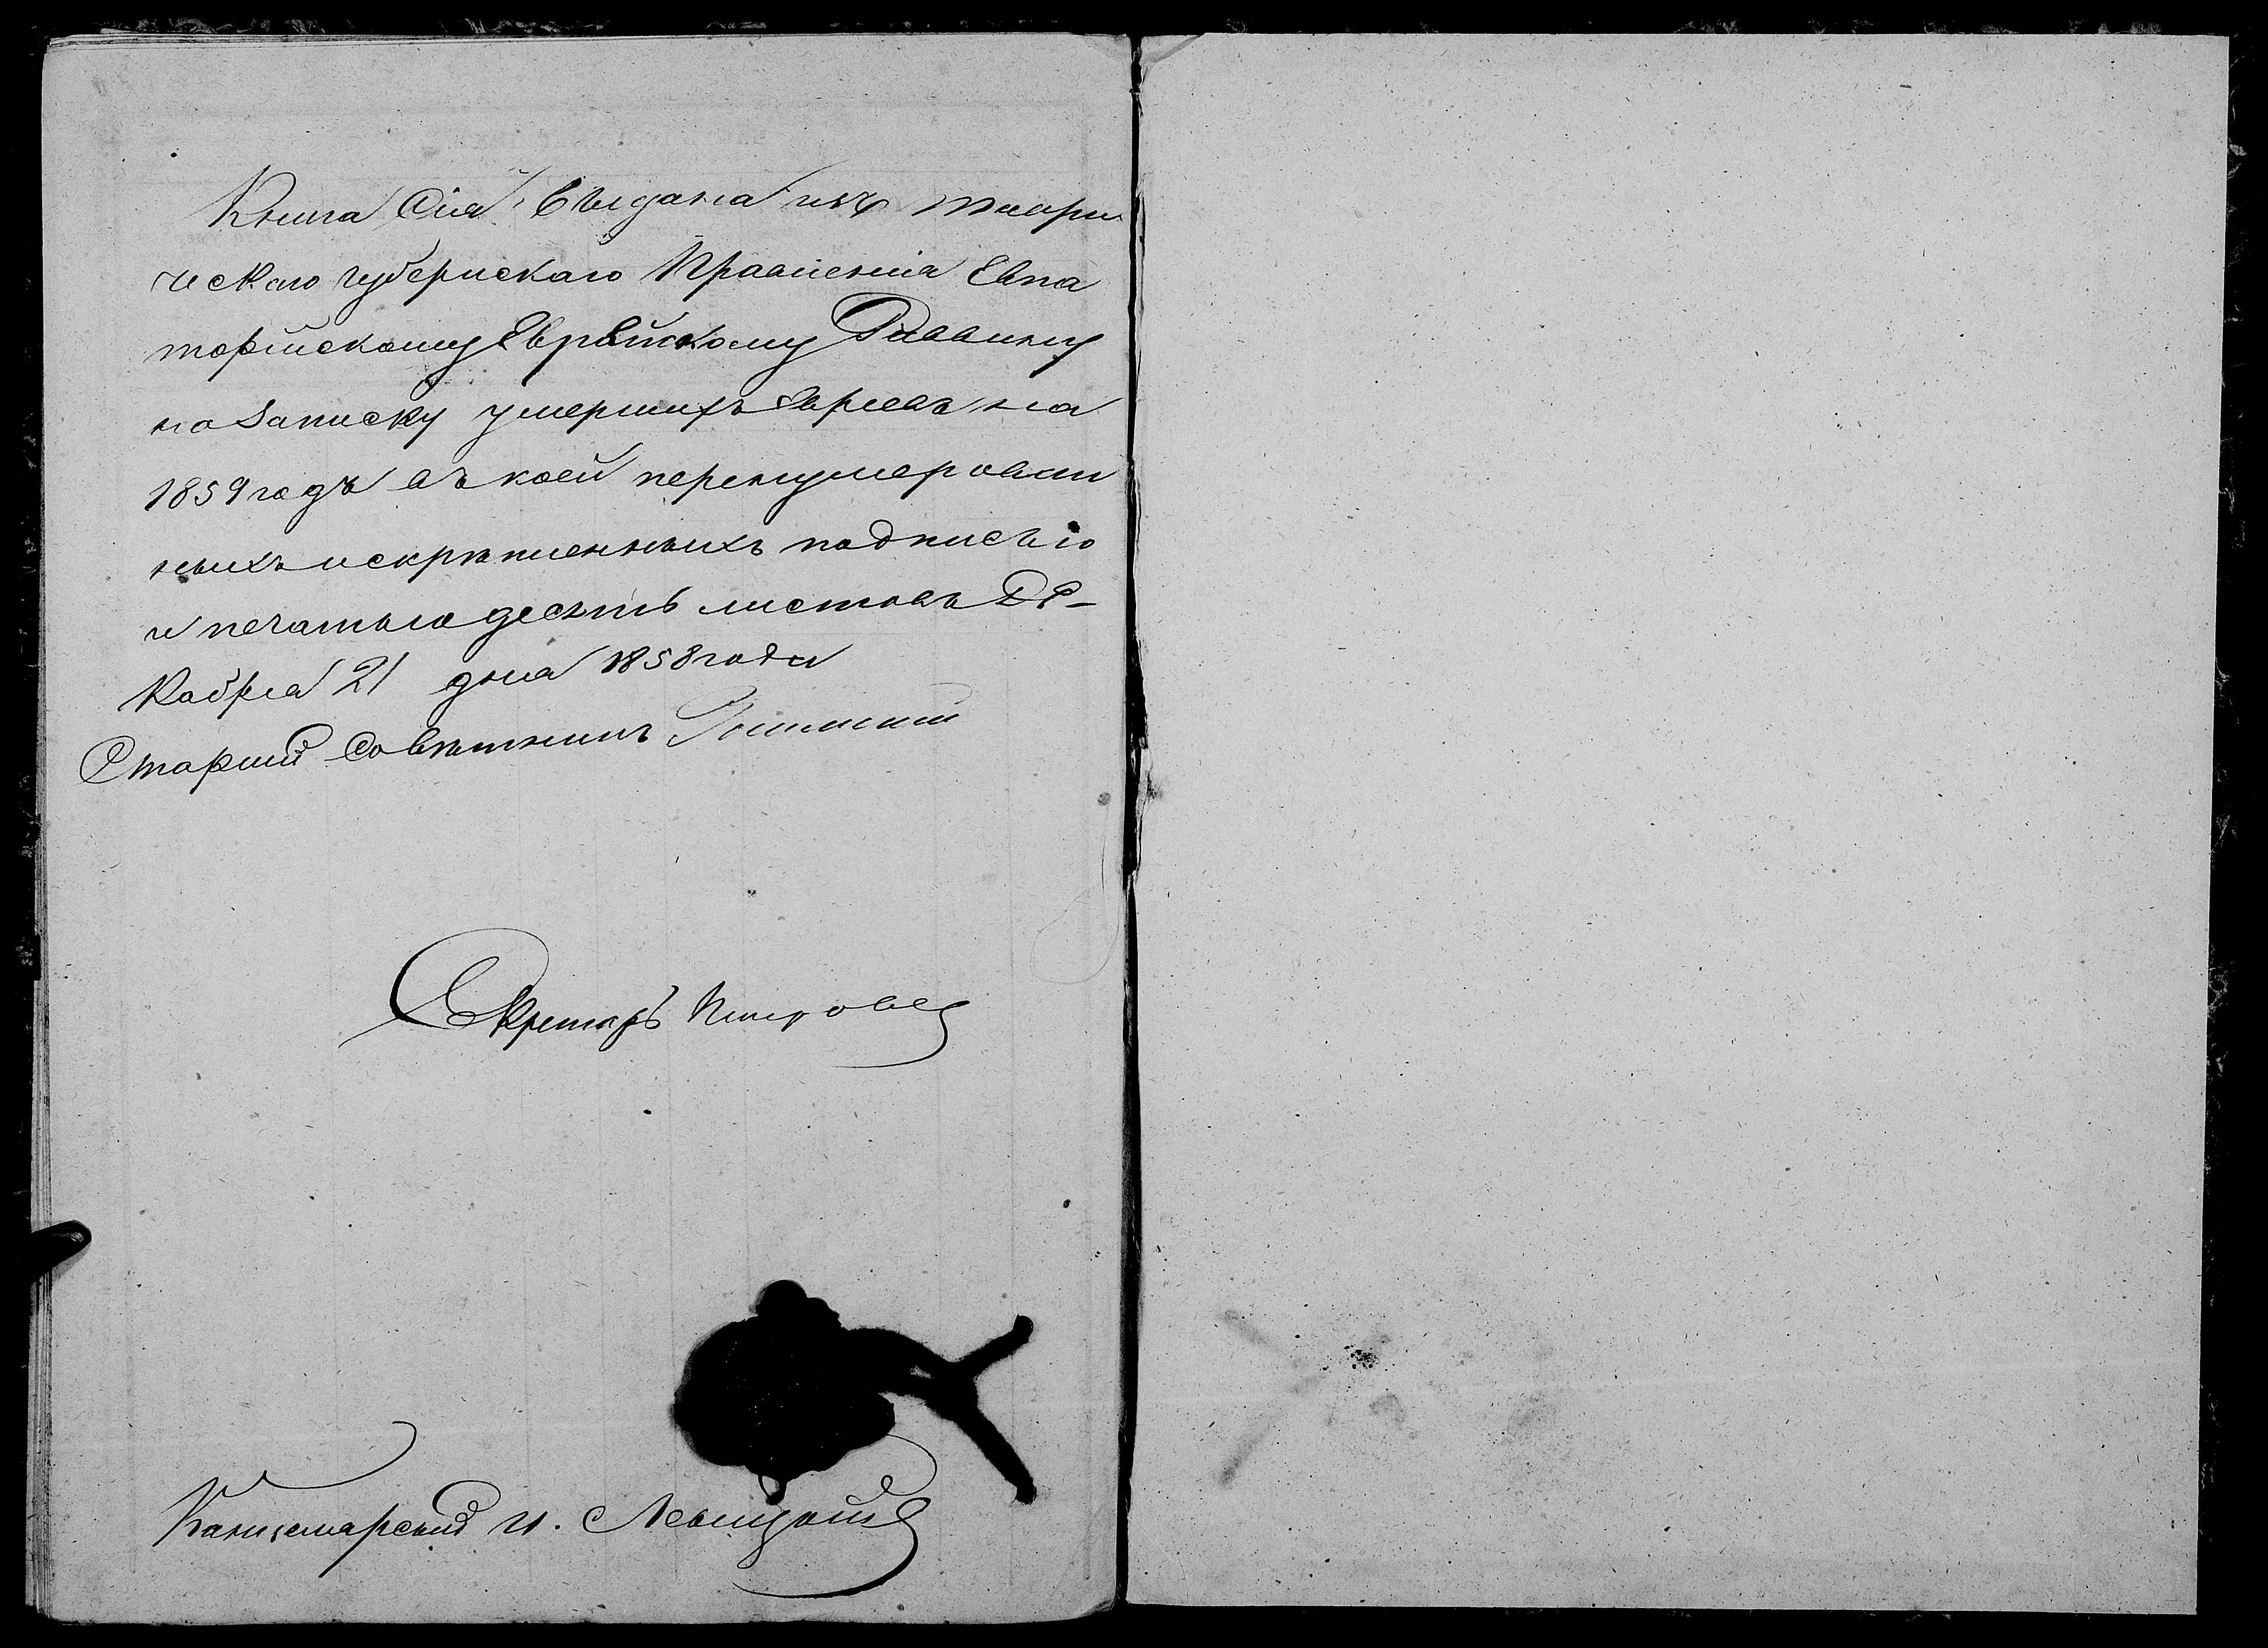 Книга Сія выдана изъ Таври
ческаго Губернскаго Правленія Евпа
торійскому Еврейскому Раввину
на записку умершихъ Евреевъ на
1859 годъ въ коей перенумерован
ныхъ и скрѣпленныхъ подписью
и печатью десять листовъ Де-
кабря 21 дня 1858 года
Старшій Совѣтникъ
Секретарь
Канцелярскій И.